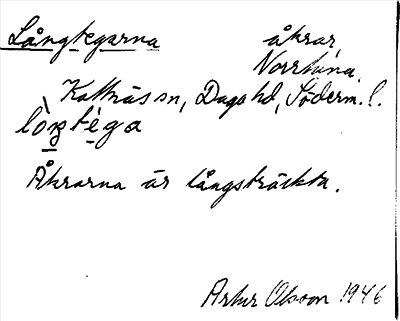 Långtegarna åkrar
Norrtuna,
Kattnäs sn, Daga hd, Söderm. l.
lòŋtéga
Åkrarna är långsträckta.
Artur Olsson 1946